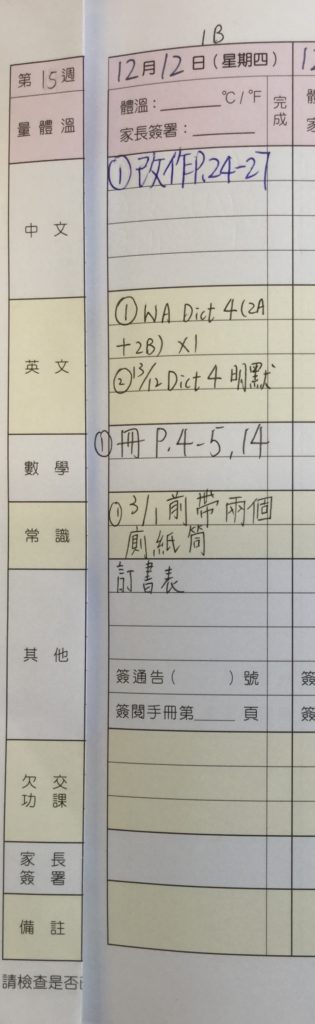 1B
第15週
12月12日(星期四)
12
量體溫
體溫:______°C/°F
家長簽署:______
完成
中文
①改作P.24-27
英文
①WA Dict 4(2A
+2B) X1
②13/12 Dict 4 明默
數學
①冊 P.4-5, 14
常識
①3/1前帶兩個
廁紙筒
其他
訂書表
簽通告( )號
簽閱手冊第____頁
欠交
功課
家長
簽署
備註
請檢查是否